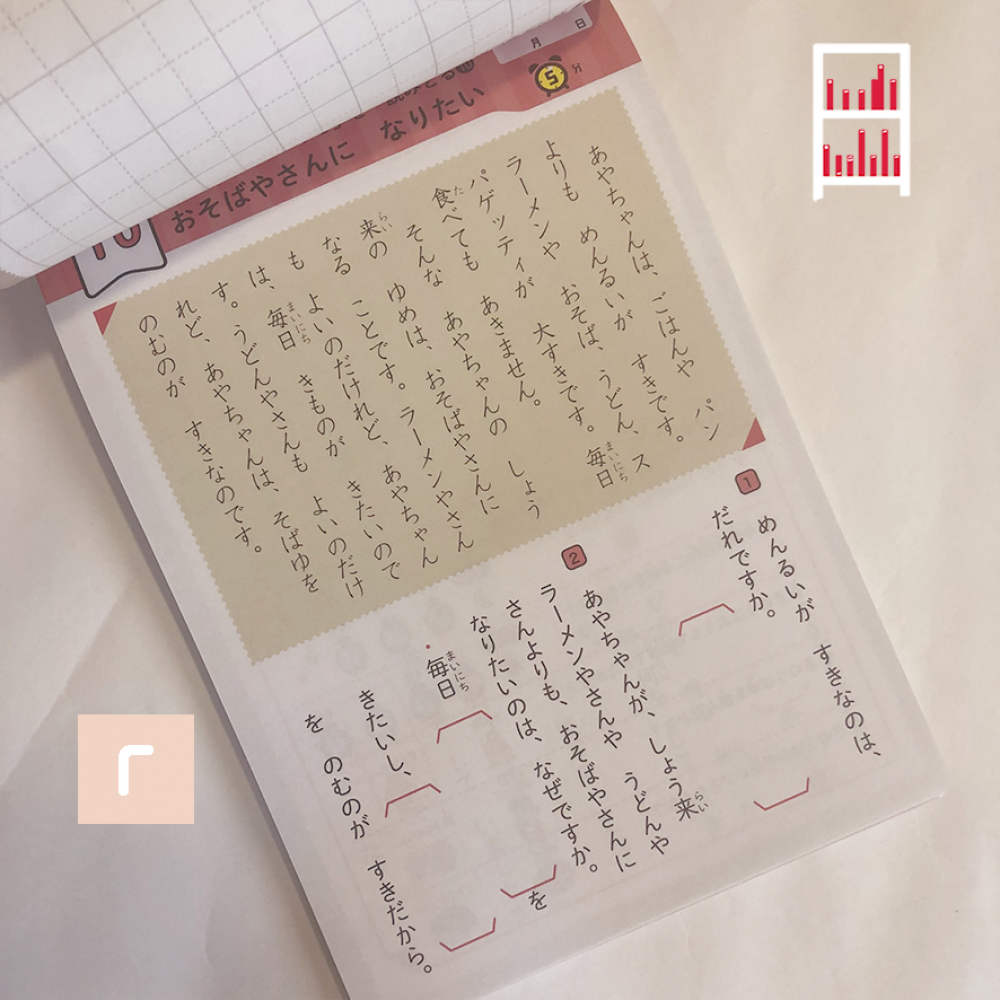 月 日
5分
おそばやさんに なりたい
あやちゃんは、ごはんや パン
よりも めんるいが すきです。
ラーメンや おそば、うどん、ス
パゲッティが 大すきです。毎日
まいにち
食べても あきません。
た
そんな あやちゃんの しょう
来の ゆめは、おそばやさんに
らい
なる ことです。ラーメンやさん
も よいのだけれど、あやちゃん
は、毎日 きものが きたいので
まいにち
す。うどんやさんも よいのだけ
れど、あやちゃんは、そばゆを
のむのが すきなのです。
1
めんるいが すきなのは、
だれですか。
2
あやちゃんが、しょう来
らい
ラーメンやさんや うどんや
さんよりも、おそばやさんに
なりたいのは、なぜですか。
・毎日 を
まいにち
きたいし、
を のむのが すきだから。